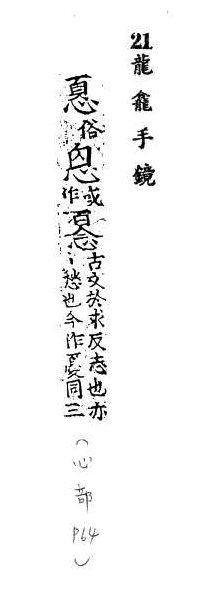 21龍龕手鏡
俗或作古文於求反志也亦
愁也今作憂同三
(心部P64)